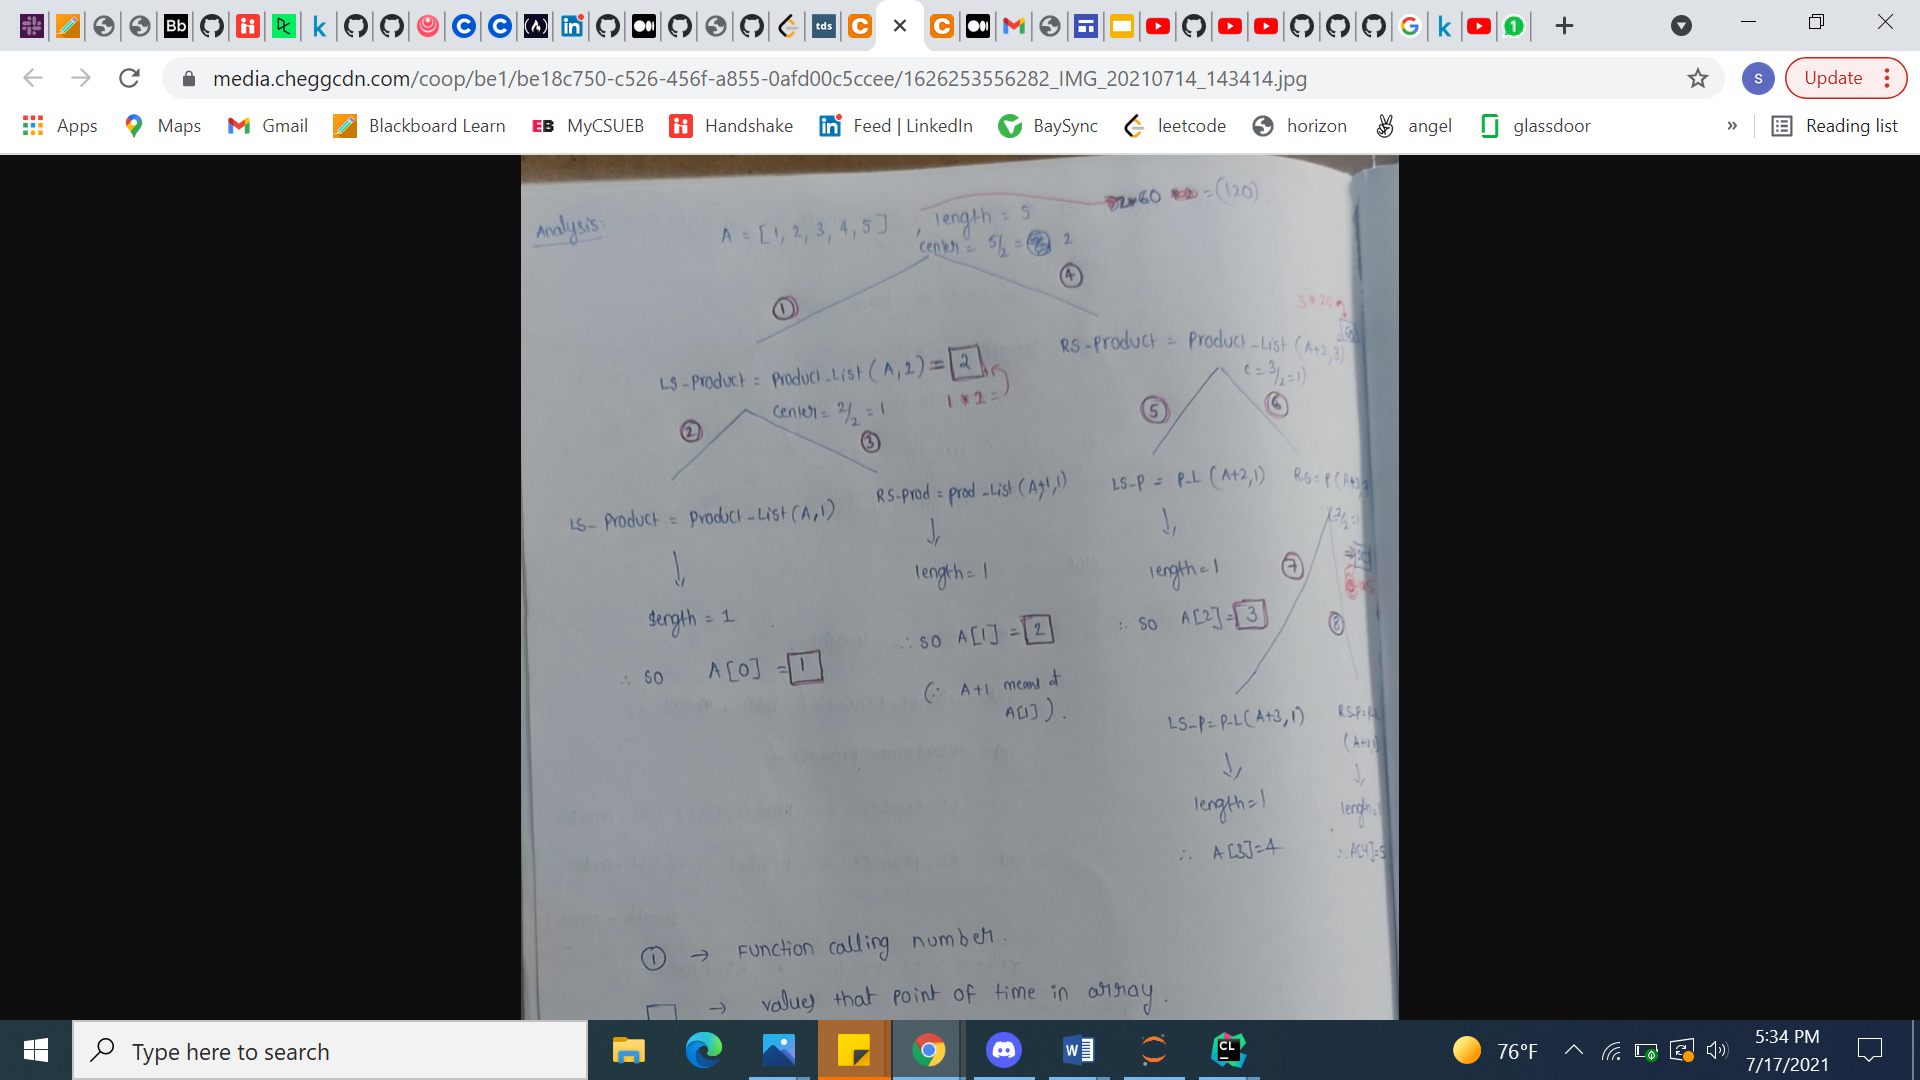 media.cheggcdn.com/coop/be1/be18c750-c526-456f-a855-0afd00c5ccee/1626253556282_IMG_20210714_143414.jpg
S
Update
Apps
Maps
Gmail
Blackboard Learn
EB MyCSUEB
Handshake
Feed | LinkedIn
BaySync
leetcode
horizon
angel
glassdoor
»
Reading list
Analysis:
A = [1, 2, 3, 4, 5] , length = 5
2*60 = (120)
center = 5/2 = 2
① ④
3 * 20
RS-Product = Product-List (A+2,3)
(c = 3/2 = 1)
LS-Product = Product-List (A,2) = 2
1 * 2 =
center = 2/2 = 1
② ③ ⑤ ⑥
LS-Product = Product-List (A,1)
RS-prod = prod-List (A+1,1)
LS-P = P-L (A+2,1)
length = 1
∴ so A[0] = 1
length = 1
∴ so A[1] = 2
(∵ A+1 means at
A[1]).
length = 1
∴ so A[2] = 3
⑦ ⑧
LS-P = P-L (A+3,1)
length = 1
∴ A[3]=4
length=1
∴ A[4]=5
① → Function calling number.
→ values that point of time in array.
Type here to search
76°F
5:34 PM
7/17/2021